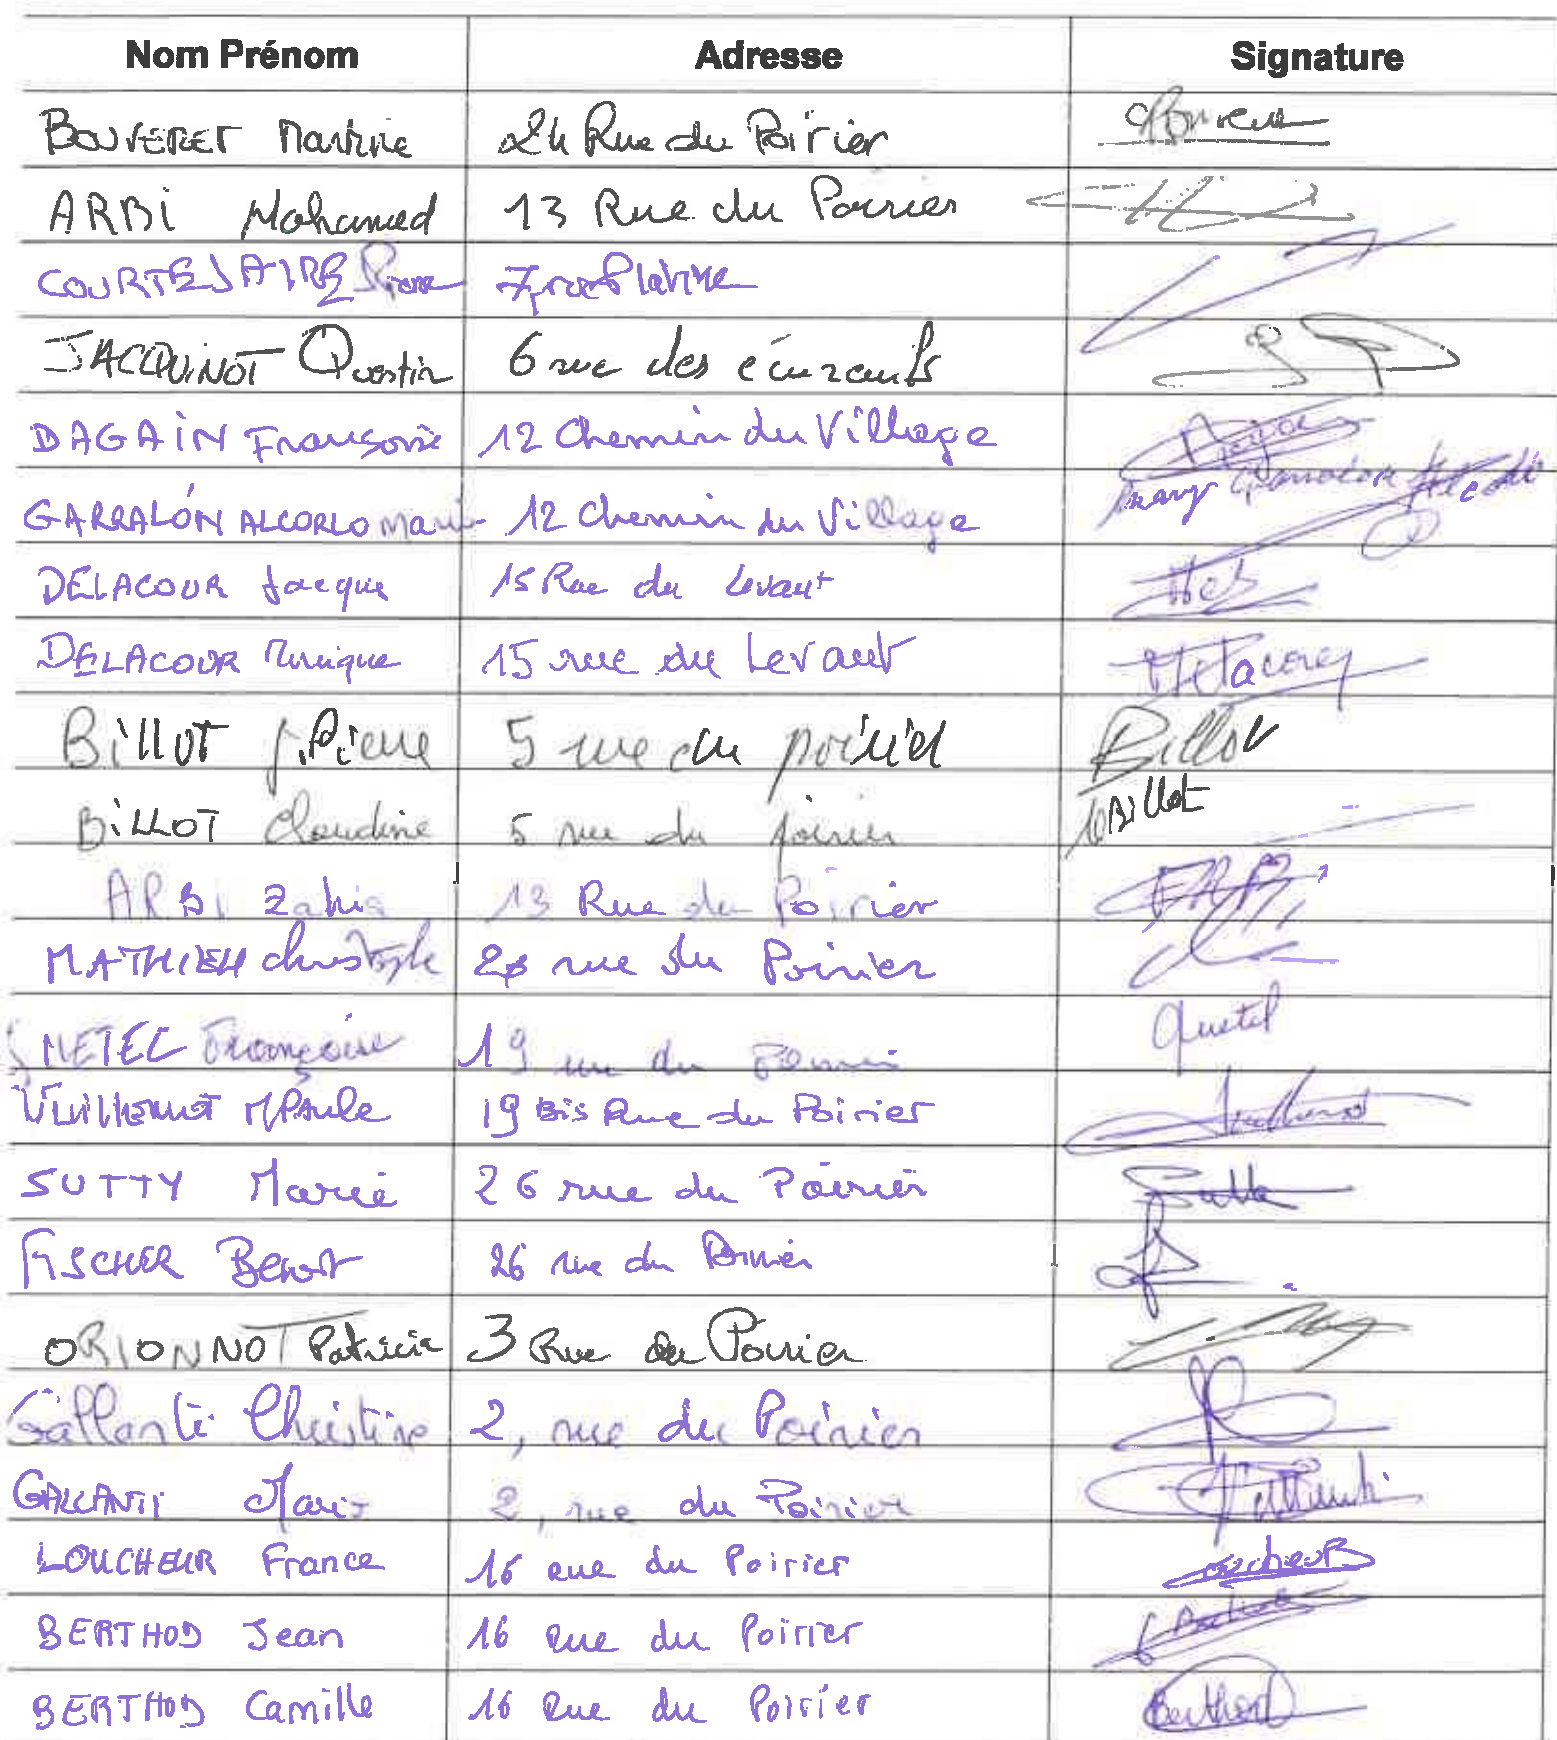 Nom Prénom Adresse Signature
BOUVERET Martine 24 Rue du Poirier
ARBI Mohamed 13 Rue du Poirier
COURTEJAIRE Pierre 7 rue Platine
JACQUINOT Quentin 6 rue des écureuils
DAGAIN Françoise 12 Chemin du Village
GARRALÓN ALCORLO Maria 12 Chemin du Village
DELACOUR Jacque 15 Rue du Levant
DELACOUR Monique 15 rue du Levant Delacour
BILLOT J.Pierre 5 rue du poirier Billot
BILLOT Claudine 5 rue du poirier Billot
ARBI Zahia 13 Rue du Poirier
MATHIEU Christophe rue du Poirier
Françoise 19 rue du Poirier Quetel
Vuillemot M Paule 19 Bis Rue du Poirier
SUTTY Marie 26 rue du Poirier
FISCHER Benoit 26 rue du Poirier
ORIONNOT Patricia 3 Rue du Poirier
Gallanti Christine 2, rue du Poirier
GALLANTI Mario 2, rue du Poirier
LOUCHEUR France 16 rue du Poirier
BERTHOD Jean 16 Rue du Poirier
BERTHOD Camille 16 Rue du Poirier Berthod